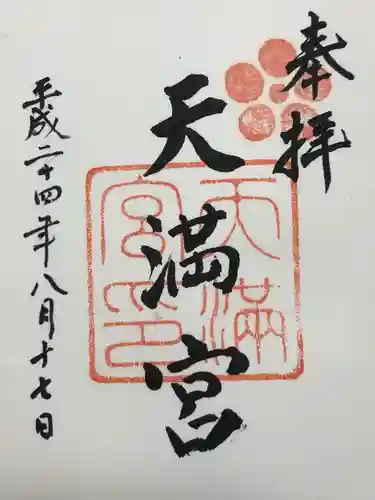 奉拝
天満宮
天満宮印
平成二十四年八月十七日